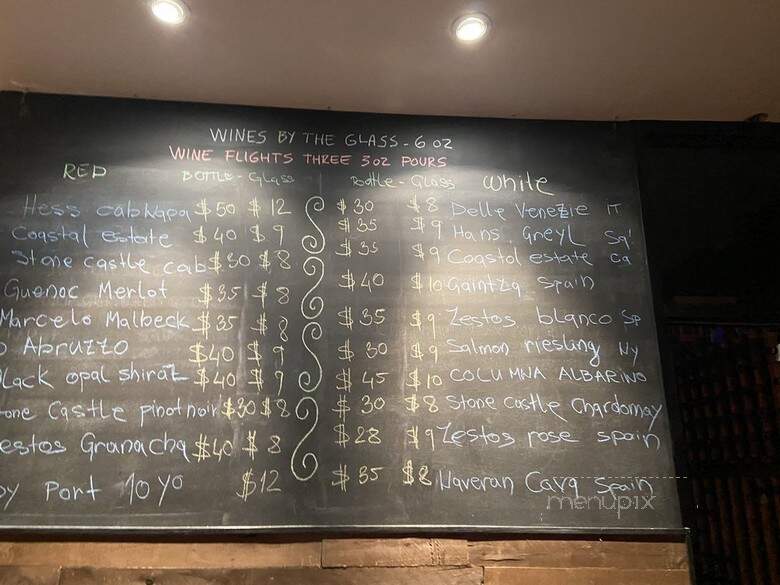 WINES BY THE GLASS - 6 OZ
WINE FLIGHTS THREE 3OZ POURS
RED BOTTLE - GLASS Bottle - Glass White
Hess cab Napa $50 $12 $30 $8 Delle Venezie IT
Coastal estate $40 $9 $35 $9 Hans Greyl Sq'
Stone castle cab $30 $8 $35 $9 Coastal estate ca
Guenoc Merlot $35 $8 $40 $10 Gaintza Spain
Marcelo Malbeck $35 $8 $35 $9 Zestos blanco Sp
o Abruzzo $40 $9 $30 $9 Salmon riesling Ny
lack opal shiraz $40 $9 $45 $10 COLUMNA ALBARINO
tone Castle pinot noir $30 $8 $30 $8 Stone Castle Chardomay
estos Granacha $40 $8 $28 $9 Zestos rose spain
by Port 10 yo $12 $35 $8 Naveran Cava Spain
menupix